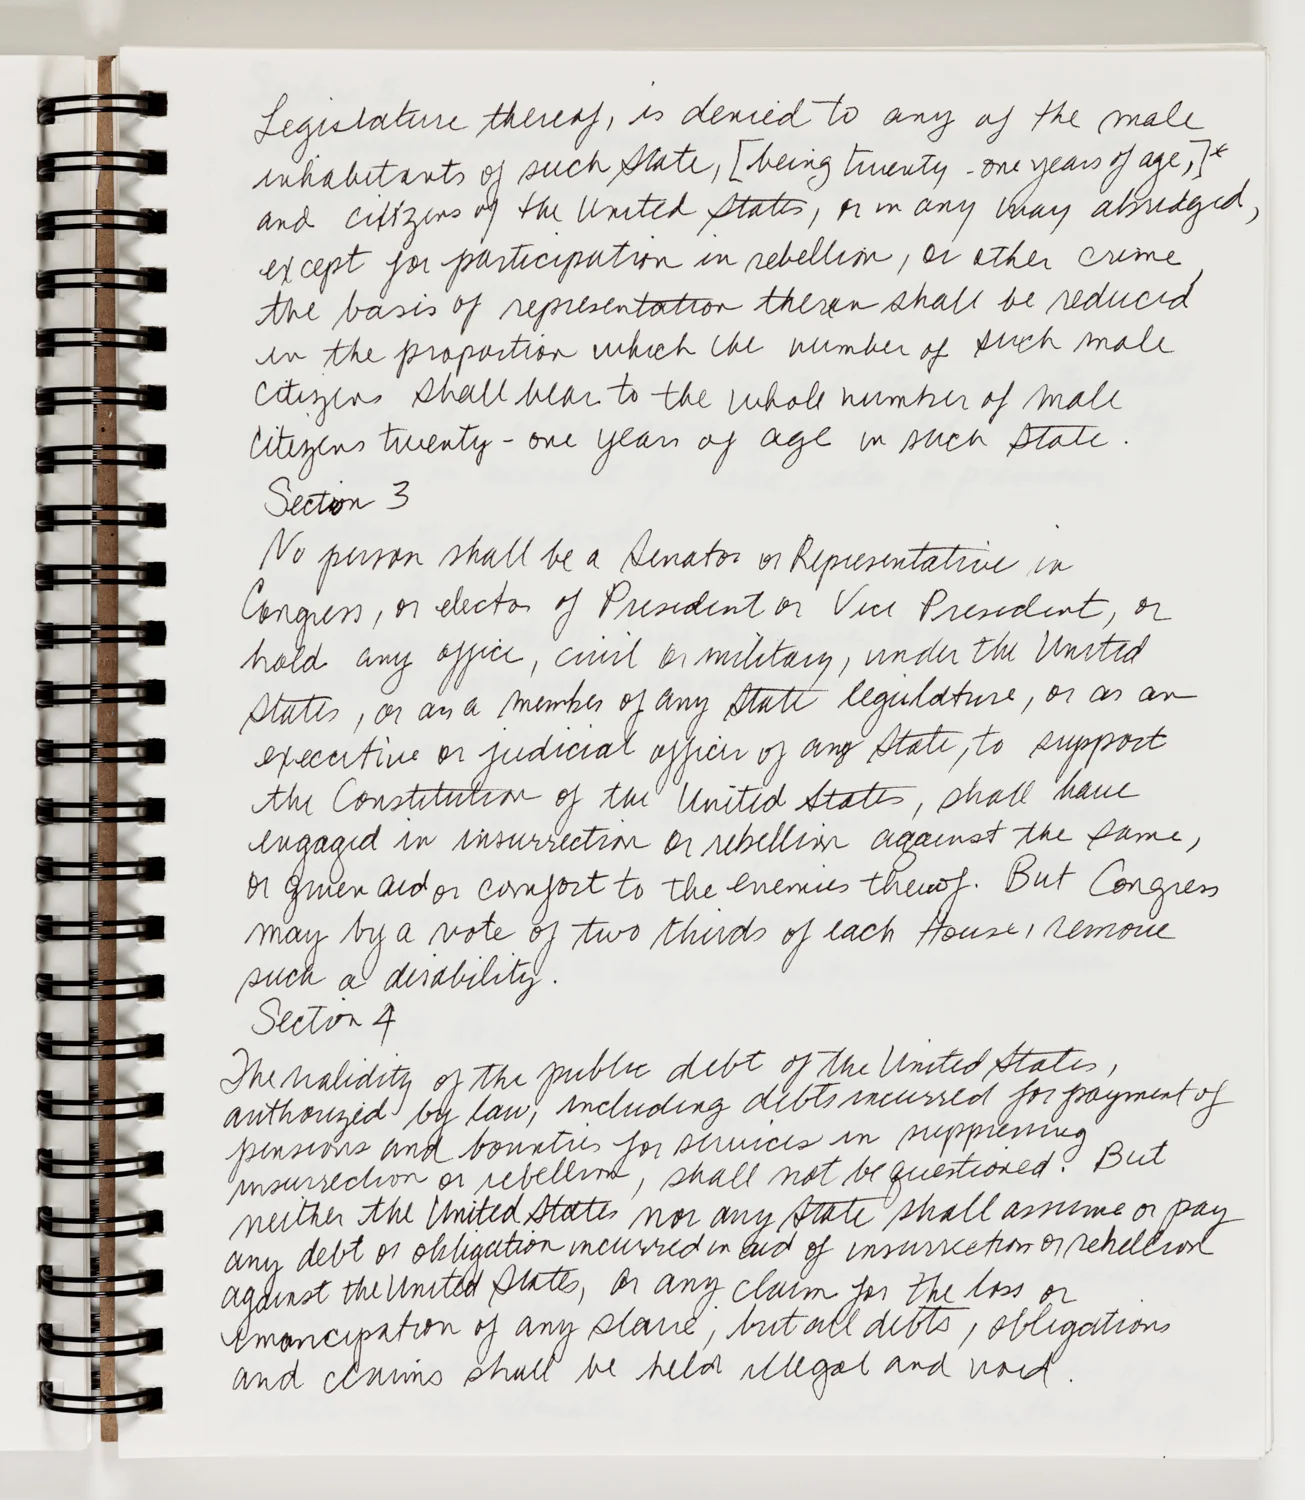 Legislature thereof, is denied to any of the male
inhabitants of such State, [being twenty-one years of age,]*
and citizens of the United States, or in any way abridged,
except for participation in rebellion, or other crime,
the basis of representation therein shall be reduced
in the proportion which the number of such male
citizens shall bear to the whole number of male
citizens twenty-one years of age in such State.
Section 3
No person shall be a Senator or Representative in
Congress, or elector of President or Vice President, or
hold any office, civil or military, under the United
States, or as a member of any State legislature, or as an
executive or judicial officer of any State, to support
the Constitution of the United States, shall have
engaged in insurrection or rebellion against the same,
or given aid or comfort to the enemies thereof. But Congress
may by a vote of two thirds of each House, remove
such a disability.
Section 4
The validity of the public debt of the United States,
authorized by law, including debts incurred for payment of
pensions and bounties for services in suppressing
insurrection or rebellion, shall not be questioned. But
neither the United States nor any State shall assume or pay
any debt or obligation incurred in aid of insurrection or rebellion
against the United States, or any claim for the loss or
emancipation of any slave, but all debts, obligations
and claims shall be held illegal and void.